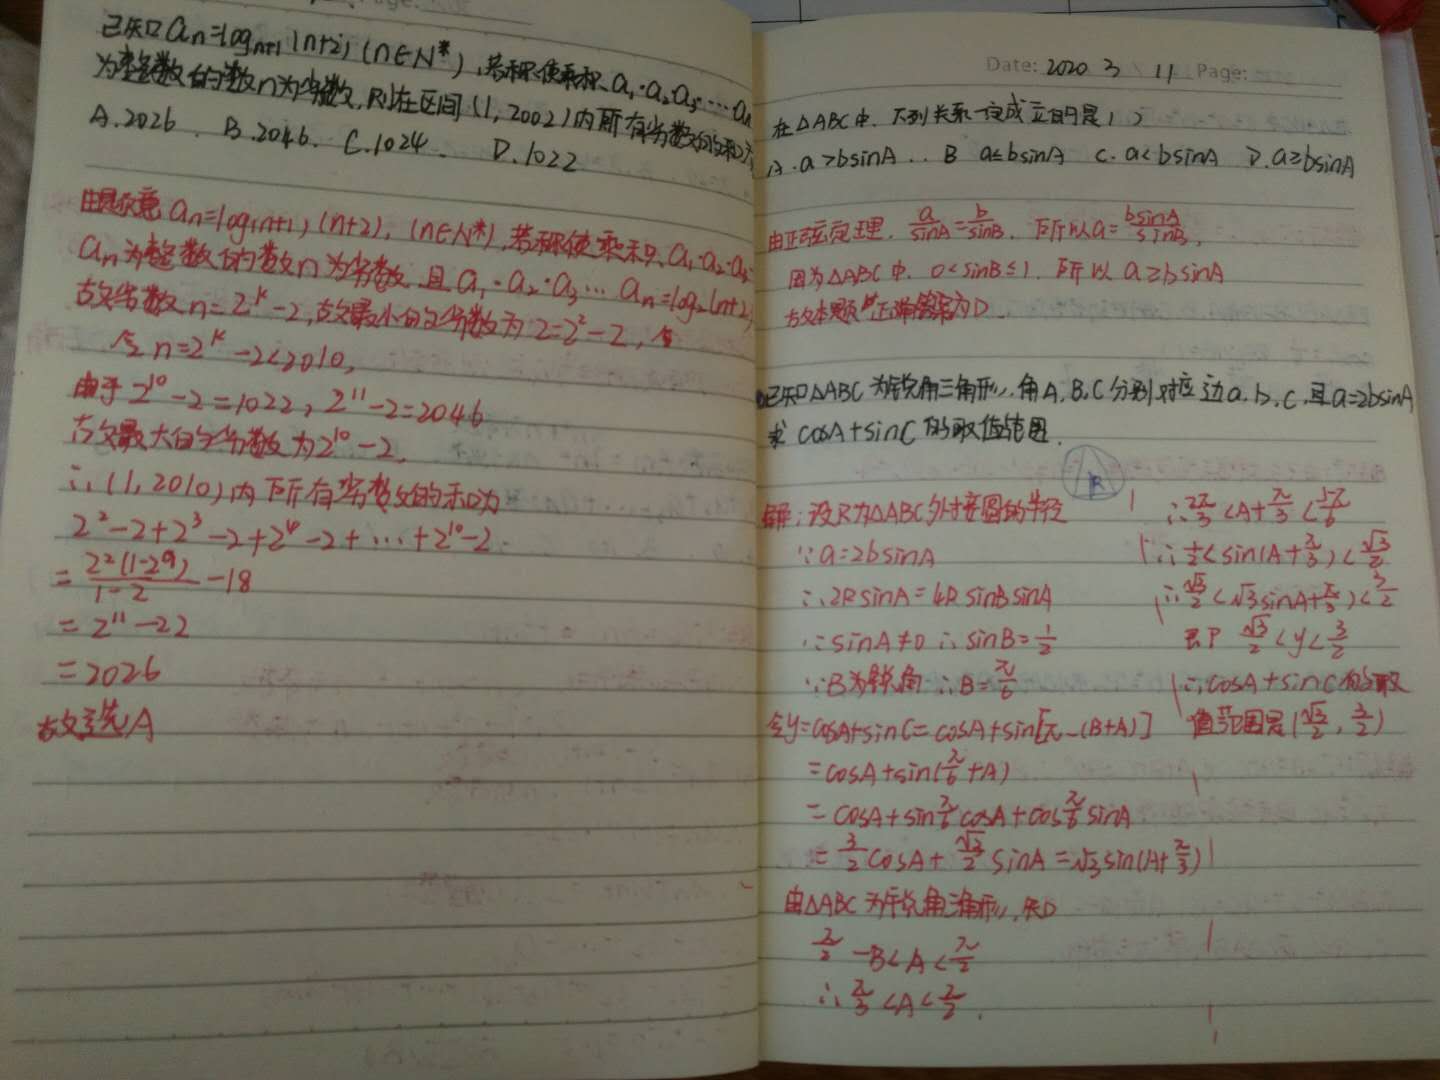 已知an=log n+1 (n+2) (n∈N*),若称使乘积a₁·a₂·a₃·……an
为整数的数n为劣数,则在区间(1,2002)内所有劣数的和为
A.2026 B.2046. C.1024. D.1022
由题意an=log(n+1)(n+2),(n∈N*),若称使乘积a₁·a₂·a₃·
an为整数的数n为劣数,且a₁·a₂·a₃…an=log₂(n+2)
故劣数n=2ᵏ-2,故最小的劣数为2=2²-2,令
令n=2ᵏ-2<2010,
由于2¹⁰-2=1022,2¹¹-2=2046
故最大的劣数为2¹⁰-2,
∴(1,2010)内所有劣数的和为
2²-2+2³-2+2⁴-2+…+2¹⁰-2
=2²(1-2⁹)/1-2 -18
=2¹¹-22
=2026
故选A
Date: 2020 3 11 Page:
在△ABC中.下列关系一定成立的是( )
A.a>bsinA.. B a≤bsinA C.a<bsinA D.a≥bsinA
由正弦定理.a/sinA=b/sinB.所以a=bsinA/sinB,
因为△ABC中.0<sinB≤1.所以a≥bsinA
故本题正确答案为D
已知△ABC为锐角三角形,角A,B,C分别对应边a,b,c,且a=2bsinA
求cosA+sinC的取值范围.
R
解:设R为△ABC外接圆的半径
∵a=2bsinA
∴2RsinA=4RsinBsinA
∵sinA≠0 ∴sinB=1/2
∵B为锐角 ∴B=π/6
令y=cosA+sinC=cosA+sin[π-(B+A)]
=cosA+sin(π/6+A)
=cosA+sinπ/6cosA+cosπ/6sinA
=3/2cosA+√3/2sinA=√3sin(A+π/3)
由△ABC为锐角三角形,知
π/2-B<A<π/2
∴π/3<A<π/2.
∴2π/3<A+π/3<5π/6
∴1/2<sin(A+π/3)<√3/2
∴√3/2<√3sinA+π/3)<3/2
即√3/2<y<3/2
∴cosA+sinC的取
值范围是(√3/2,3/2)